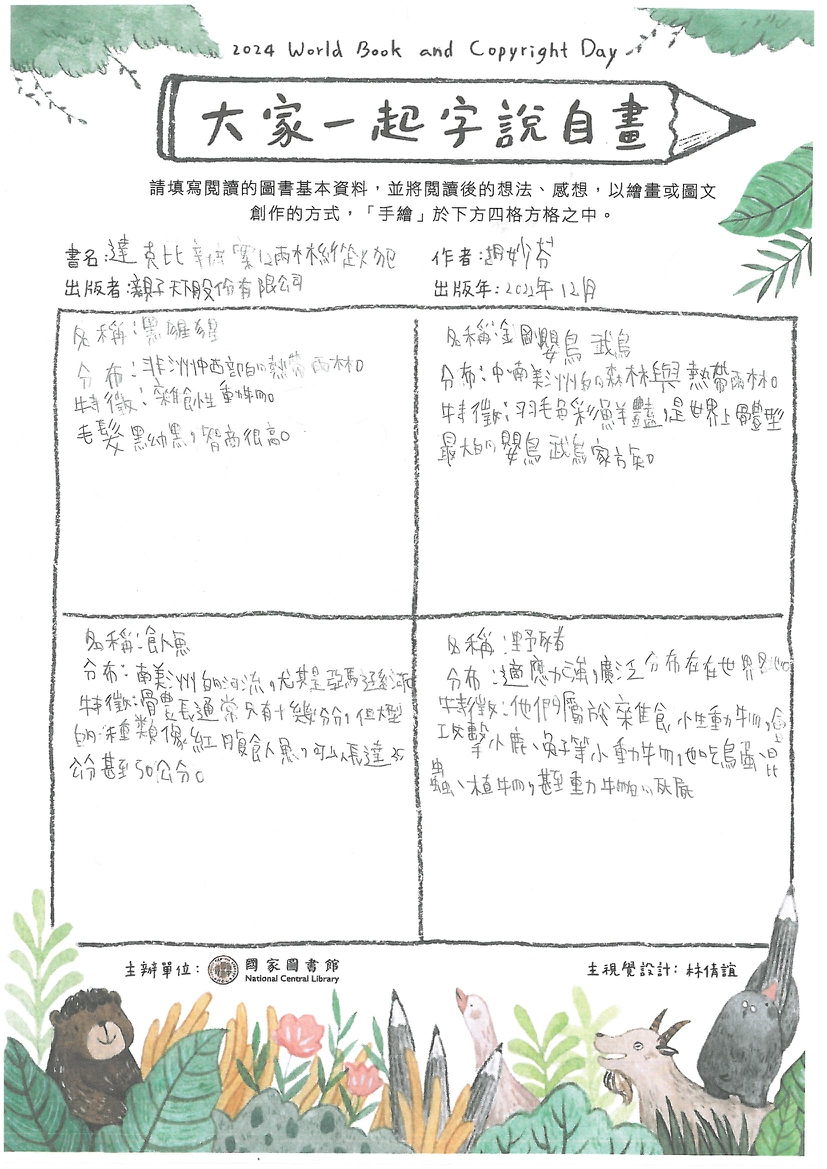 2024 World Book and Copyright Day
大家一起字說自畫
請填寫閱讀的圖書基本資料，並將閱讀後的想法、感想，以繪畫或圖文
創作的方式，「手繪」於下方四格方格之中。
書名:達克比辦案12雨林縱火犯
作者:胡妙芬
出版者:親子天下股份有限公司
出版年:2022年12月
名稱:黑猩猩
分布:非洲中西部的熱帶雨林。
特徵:雜食性動物。
毛髮黑幼黑,智商很高。
名稱:金剛鸚鳥 武鳥
分布:中南美洲的森林與熱帶雨林。
特徵:羽毛色彩鮮豔,是世界上體型
最大的鸚鳥 武鳥家族。
名稱:食人魚
分布:南美洲的河流,尤其是亞馬遜河
特徵:體長通常只有十幾公分,但大型
的種類像紅腹食人魚,可以長達
公分甚至50公分。
名稱:野豬
分布:適應力強,廣泛分布在在世界各地
特徵:他們屬於雜食性動物,會
攻擊小鹿、兔子等小動物,也吃鳥蛋、昆
蟲、植物,甚至動物的死屍
主辦單位:
國家圖書館
National Central Library
主視覺設計:林倩誼